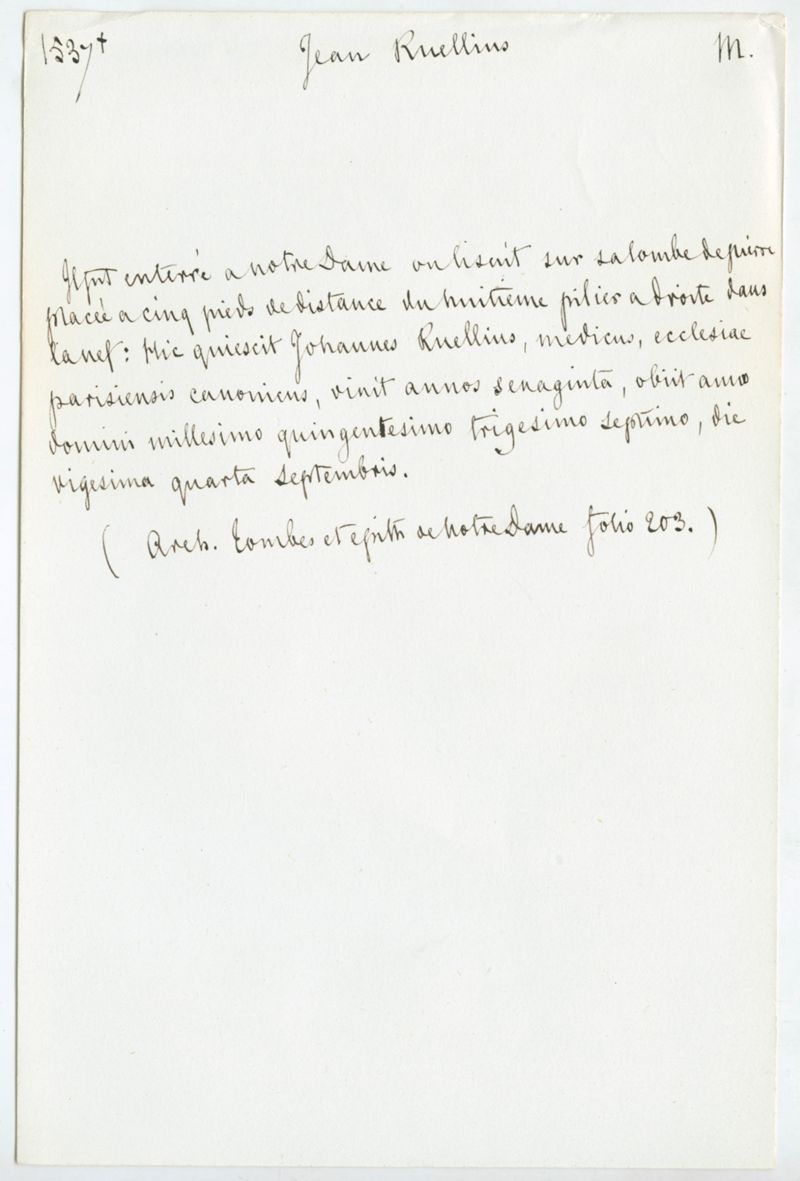 1537† Jean Ruellius M.
Il fut enterré a notre Dame on lisait sur sa tombe de pierre
placée a cinq pieds de distance du huitieme pilier a droite dans
la nef : Hic quiescit Johannes Ruellius, medicus, ecclesiae
parisiensis canonicus, vixit annos sexaginta, obiit anno
domini millesimo quingentesimo trigesimo septimo, die
vigesima quarta septembris.
( Arch. Tombes et epith de notre Dame folio 203. )